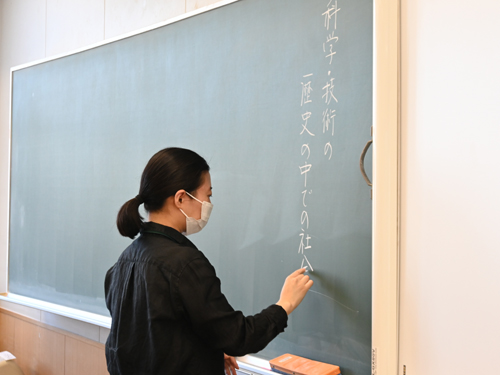 科学・技術の
歴史の中での社会